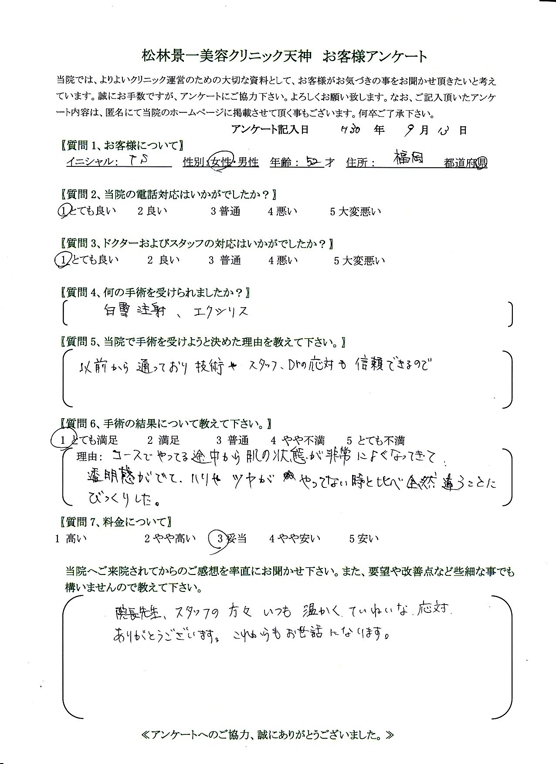 松林景一美容クリニック天神　お客様アンケート
当院では、よりよいクリニック運営のための大切な資料として、お客様がお気づきの事をお聞かせ頂きたいと考え
ています。誠にお手数ですが、アンケートにご協力下さい。よろしくお願い致します。なお、ご記入頂いたアンケ
ート内容は、匿名にて当院のホームページに掲載させて頂く事もございます。何卒ご了承下さい。
アンケート記入日　H30 年　9 月　13 日
【質問1、お客様について】
イニシャル：TS　性別：女性・男性　年齢：52才　住所：福岡　都道府県
【質問2、当院の電話対応はいかがでしたか？】
1とても良い　2 良い　3 普通　4 悪い　5 大変悪い
【質問3、ドクターおよびスタッフの対応はいかがでしたか？】
1とても良い　2 良い　3 普通　4 悪い　5 大変悪い
【質問4、何の手術を受けられましたか？】
白雪注射、エクシリス
【質問5、当院で手術を受けようと決めた理由を教えて下さい。】
以前から通っており技術やスタッフ、Drの応対も信頼できるので
【質問6、手術の結果について教えて下さい。】
1 とても満足　2 満足　3 普通　4 やや不満　5 とても不満
理由：コースでやってる途中から肌の状態が非常によくなってきて
透明感がでて、ハリやツヤがやってない時と比べ全然違うことに
びっくりした。
【質問7、料金について】
1 高い　2 やや高い　3 妥当　4 やや安い　5 安い
当院へご来院されてからのご感想を率直にお聞かせ下さい。また、要望や改善点など些細な事でも
構いませんので教えて下さい。
院長先生、スタッフの方々いつも温かく、ていねいな応対
ありがとうございます。これからもお世話になります。
≪アンケートへのご協力、誠にありがとうございました。≫